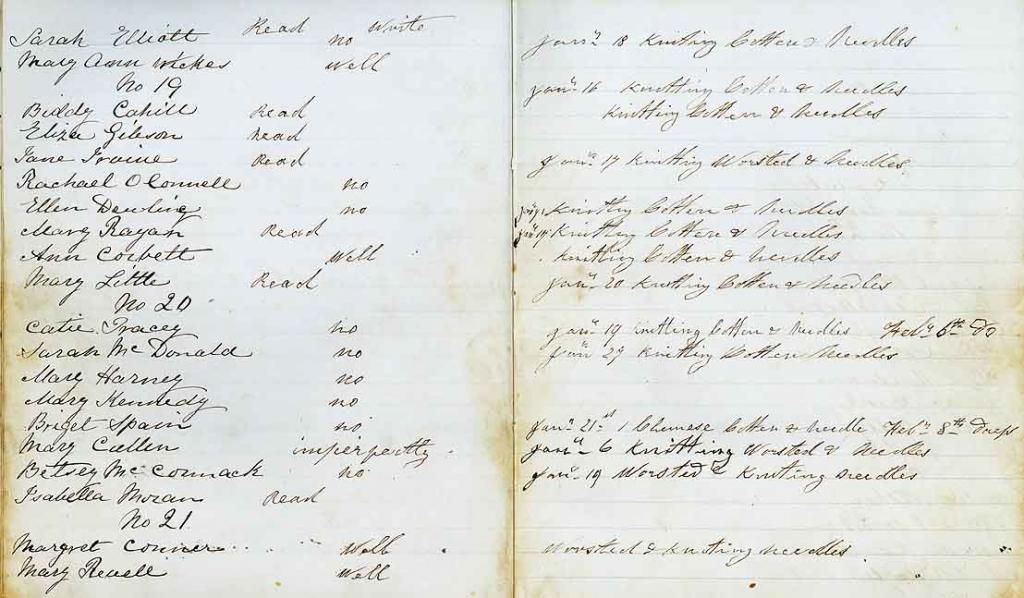 Read Write
Sarah Elliott no Janry 18 Knitting Cotten & Needles
Mary Ann Wickes Well
No 19 Janry 16 Knitting Cotten & Needles
Biddy Cahill Read Knitting Cotten & Needles
Eliza Gibson Read
Jane Irvine Read Janry 17 Knitting Worsted & Needles
Rachael O Connell no
Ellen Dewling no Knitting Cotten & Needles
Mary Ragan Read Knitting Cotten & Needles
Ann Corbett Well Knitting Cotten & Needles
Mary Little Read Janry 20 Knitting Cotten & Needles
No 20
Catie Tracey no Janry 19 Knitting Cotten & Needles Feby 6th Do
Sarah Mc Donald no Janry 27 Knitting Cotten Needles
Mary Harney no
Mary Kennedy no
Briget Spain no Janry 21st 1 Chemese Cotten & needle Feby 8th
Mary Cullen imperpectly Janry 6 Knitting Worsted & Needles
Betsey Mc Cormack no Janry 19 Worsted & Knitting Needles
Isabella Moran Read
No 21
Margret Conner Well Worsted & Knitting Needles
Mary Revell Well